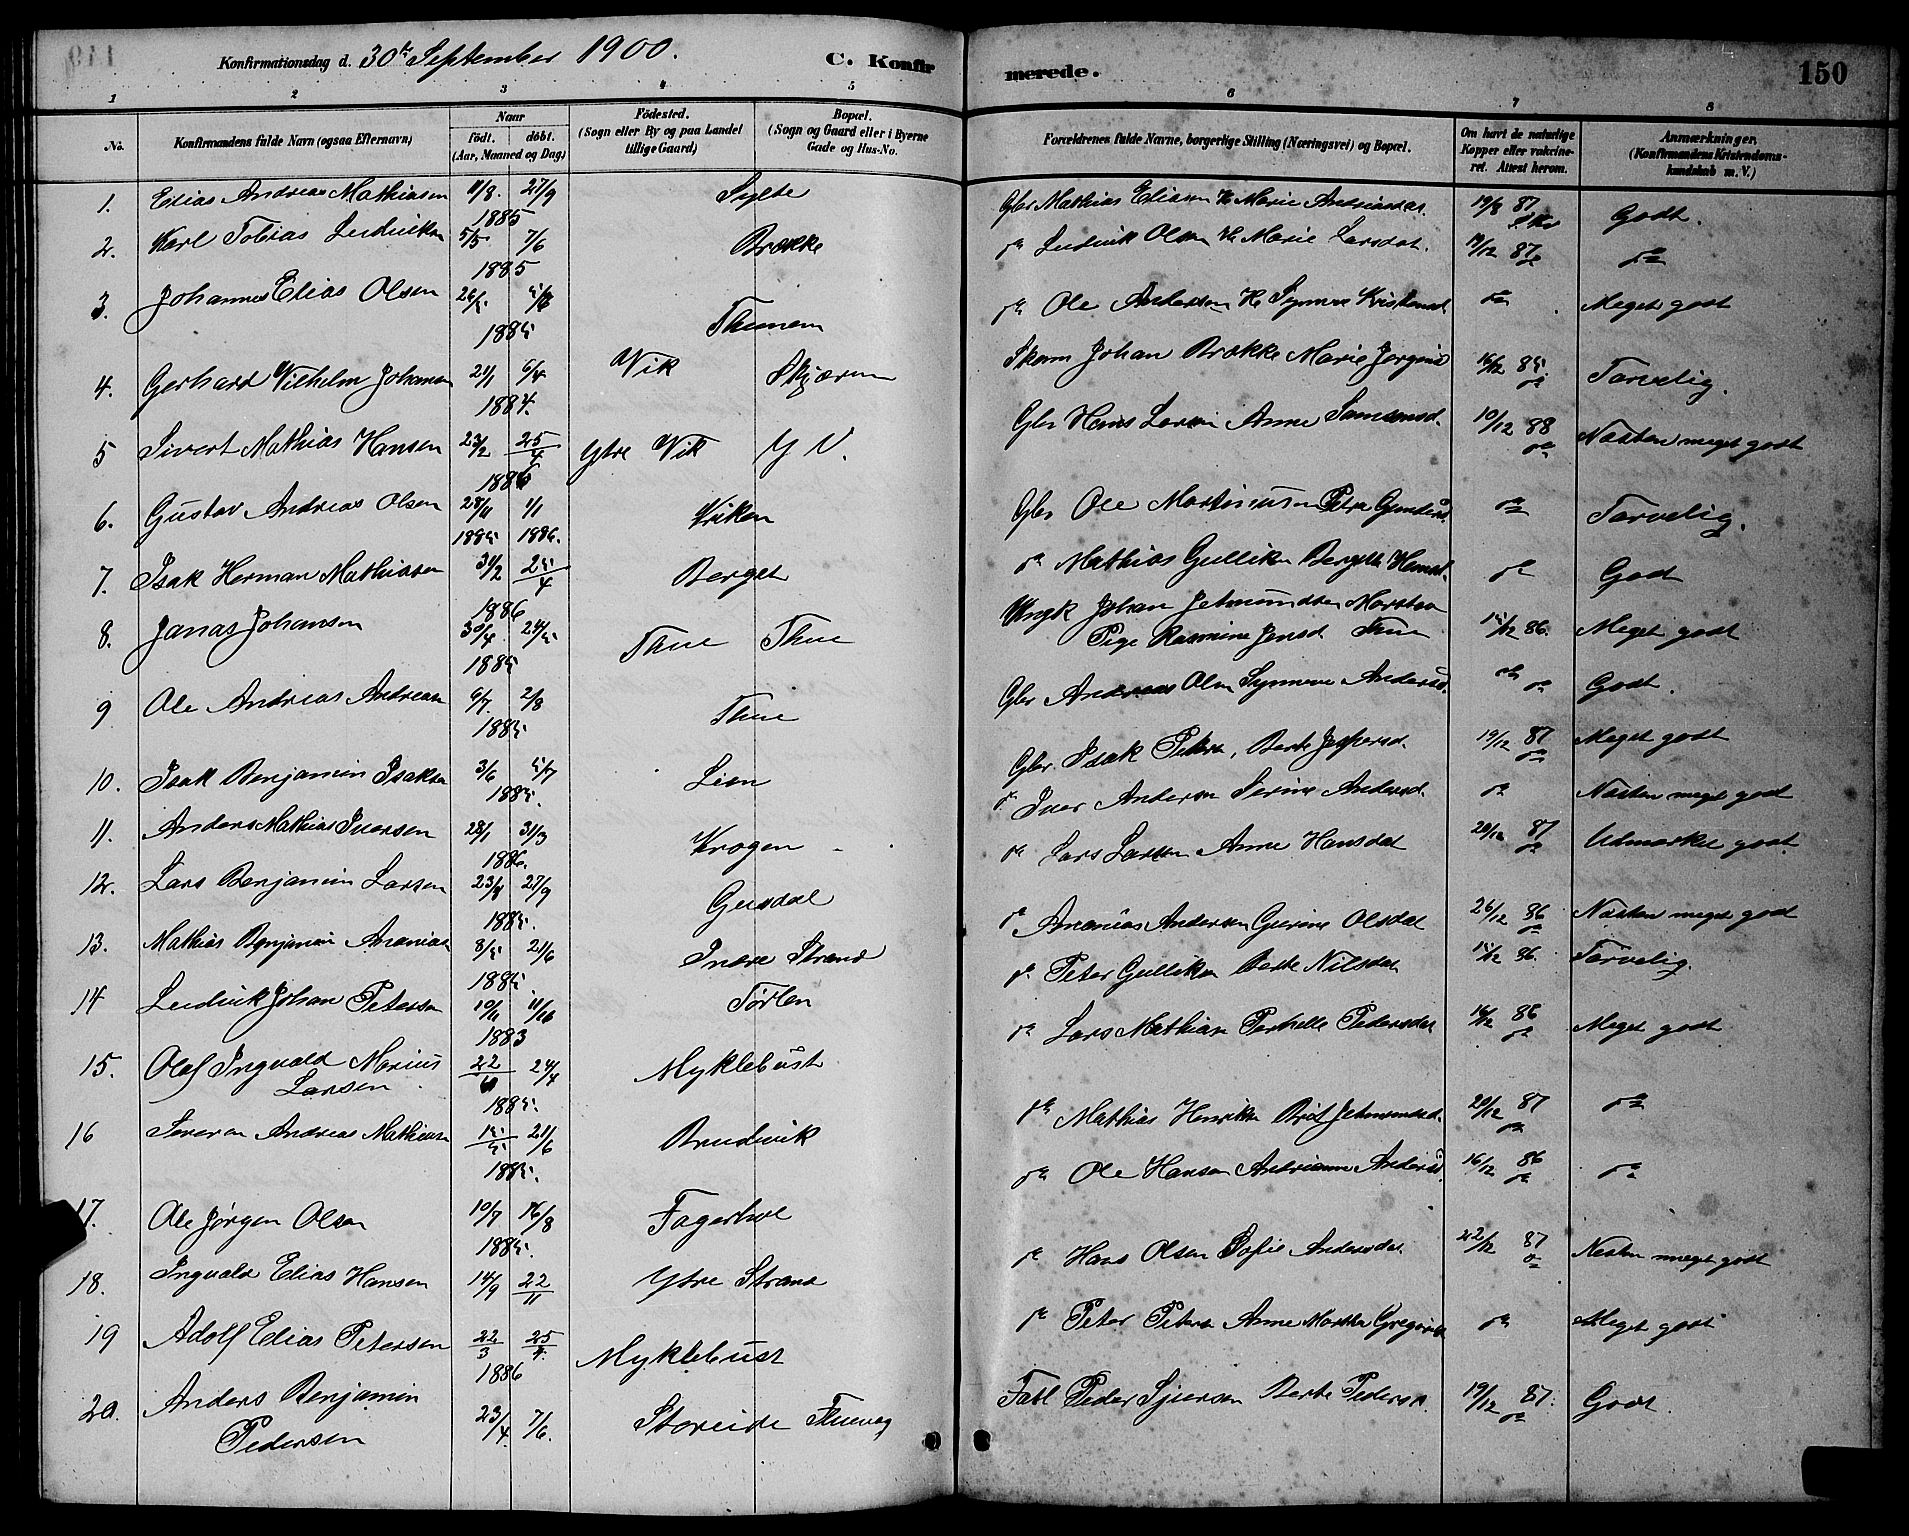 Konfirmationsdag d. 30te September 1900. C. Konfirmerede. 150
1 2 3 4 5 6 7 8
No. Konfirmandens fulde Navn (ogsaa Efternavn) Naar født. døbt. (Aar, Maaned og Dag) Fødested. (Sogn eller By og paa Landet tillige Gaard) Bopæl. (Sogn og Gaard eller i Byerne Gade og Hus-No. Forældrenes fulde Navne, borgerlige Stilling (Næringsvei) og Bopæl. Om havt de naturlige Kopper eller vakcineret. Attest herom. Anmærkninger. (Konfirmandens Kristendomskundskab m. V.)
1. Elias Andreas Mathiasen 11/8. 27/9 1885 Sylte Gbr Mathias Eliasen H Marie Andreasdat. 19/8 87 Godt.
2. Karl Tobias Ludviksen 5/5 7/6 1885 Brække da Ludvik Olsen H Marie Larsdat. 19/12 87 da
3. Johannes Elias Olsen 26/5 1885 Thunem da Ole Andersen H Synneve Kristensd da Meget godt
4. Gerhard Vilhelm Johansen 21/1 6/4 1884. Vik Skjærum Skom Johan Brække Marie Jørgensd 16/12 85 da Tarvelig.
5 Sivert Mathias Hansen 23/2 25/4 1886 Ytre Vik Y V. Gbr Hans Larsen Anne Samsonsd. 10/12 88 da Næsten meget godt
6. Gustav Andreas Olsen 28/11 1/1 1885 1886. Viken Gbr Ole Martinusen Petra Gundersd. da Tarvelig.
7. Isak Herman Mathiasen 31/2 25/4 1886 Berget da Mathias Gulliksen Bergitte Hansd. da God
8. Jonas Johansen 30/4 24/5 1885 Thue Thue Ungk Johan Jetmundsen Marstva
Pige Rasmine Jensd Thue 15/12 86. Meget godt
9 Ole Andreas Andreasen 6/7. 2/8 1885 Thue Gbr Andreas Olsen Synneve Andersd. da Godt.
10. Isak Benjamin Isaksen 3/6 5/7 1885. Lien Gbr. Isak Peters, Berte Jespersd. 19/12 87 da Meget godt
11. Anders Mathias Iversen 28/1 31/3 1886. Krogen da Iver Andersen Serine Andersd. da Næsten meget god
12. Lars Benjamin Larsen 23/8 27/9 1885. Gusdal da Lars Larsen Anne Hansdat 20/12 87 da Udmærket godt
13. Mathias Benjamin Ananias 8/5 21/6 1885. Indre Strand da Ananias Andersen Gurine Olsdat 26/12 86 da Næsten meget god
14 Ludvik Johan Petersen 10/11 11/10 1883 Tørlen da Peter Gulliksen Berte Nilsdat 15/12 86. Tarvelig.
15. Olaf Ingvald Marius Larsen 22 24/4 1885. Myklebust da Lars Mathias Pernelle Pedersdat 16/12 86 da Meget godt
16 Severin Andreas Mathiasen 15/5 21/6 1885. Brudevik da Mathias Henriksen Brit Jetmundsd. 20/12 87 da da
17. Ole Jørgen Olsen 10/7 16/8 1885. Fagerhol da Ole Hansen Andrianne Andersd. 16/12 86 da da
18. Ingvald Elias Hansen 14/9 22/11 Ytre Strand da Hans Olsen Sofie Andersdat. 22/12 87 da Næsten meget godt
19 Adolf Elias Petersen 22/3 25/4. 1886 Myklebust da Peter Peters Anne Martha Gregorsd da Meget godt
20. Anders Benjamin Pedersen 23/4. 7/6. Storeide Thuevag Fabl Peder Sjursen Berte Pedersd. 19/12 87. da Godt.